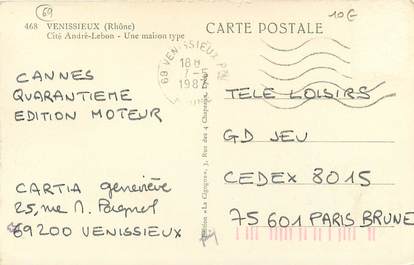 69
468 VENISSIEUX (Rhône)
Cité André-Lebon - Une maison type
CARTE POSTALE
10€
69 VENISSIEUX
18H
7-
198
CANNES
QUARANTIEME
EDITION MOTEUR
CARTIA geneviève
25, rue M. Pagnol
69200 VENISSIEUX
Edition «La Cigogne», 3, Rue des 4 Chapeaux, Lyon
TELE LOISIRS
GD JEU
CEDEX 8015
75601 PARIS BRUNE